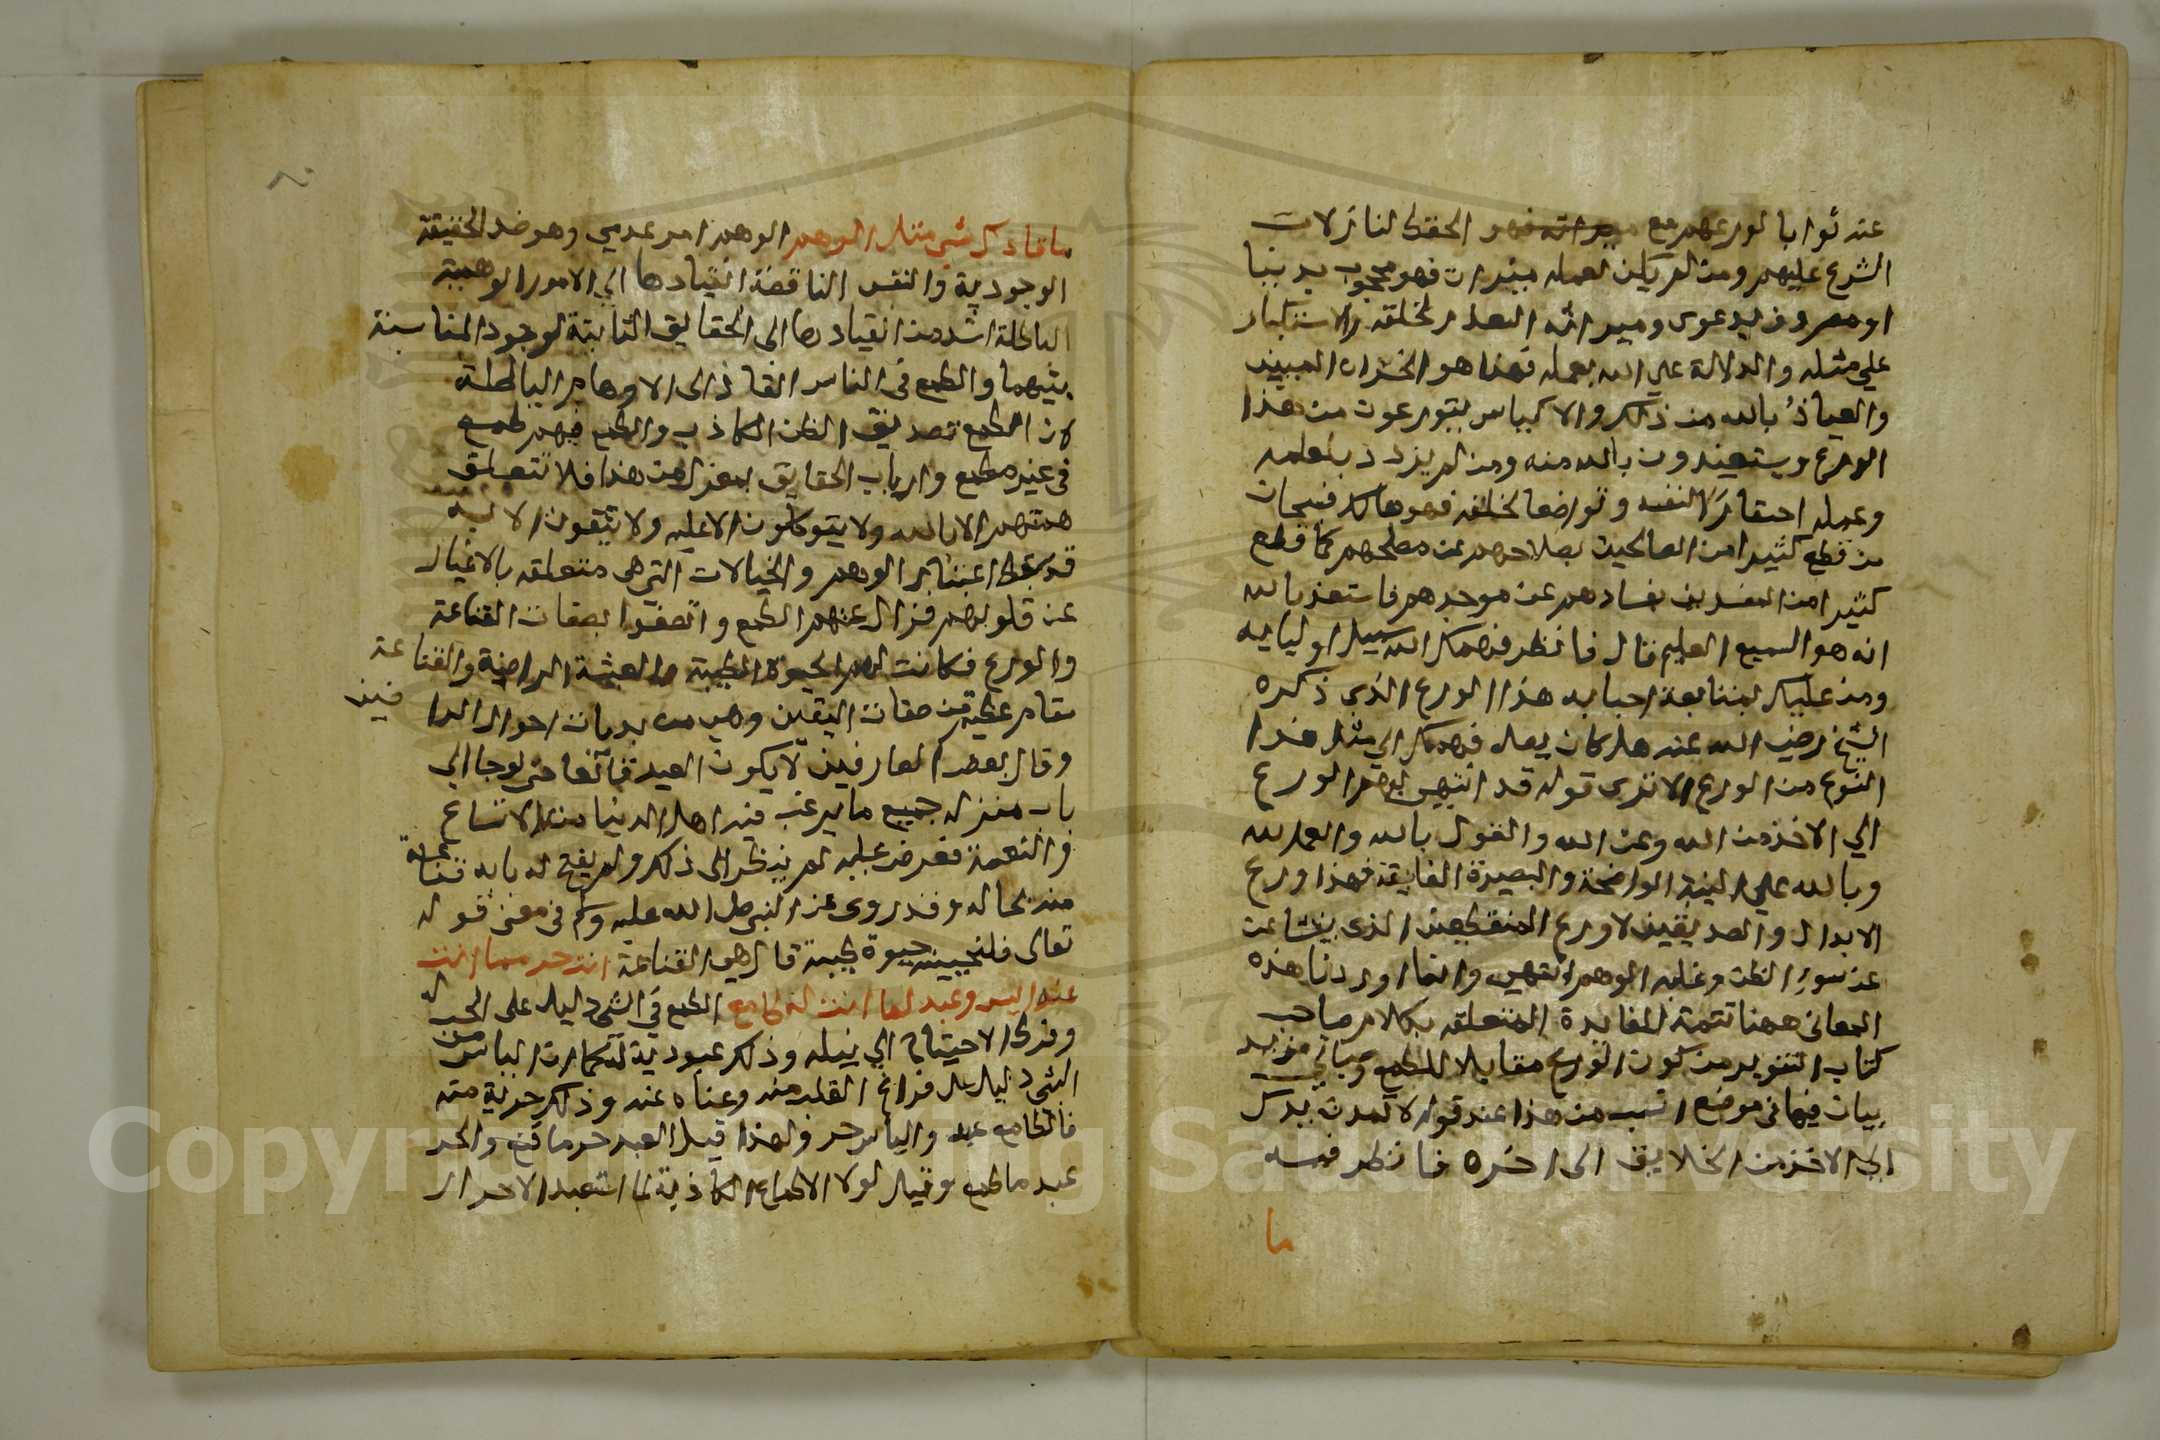 عنه ثوابا لورعهم مع فهو الحفظ لنازلات
الشرع عليهم ومن لم يكن لعمله فهو محجوب بدنيا
او مصروف بدعوى وميراثه التعزز لخلقه والاستكبار
علي مثله والدلالة علي الله بعمله فهذا هو الخسران المبين
والعياذ بالله من ذلك والاكياس يتورعون من هذا
الورع ويستعيذون بالله منه ومن لم يزدد بعلمه
وعمله احتقارا لنفسه وتواضعا لخلقه فهو هالك فسبحان
من قطع كثيرا من الصالحين بصلاحهم عن مصلحهم كما قطع
كثيرا من المفسدين بفسادهم عن موجدهم فاستعذ بالله
انه هو السميع العليم قال فانظر فهمك الله سبيل اوليايه
ومن عليك بمتابعة احبابه هذا الورع الذي ذكره
الشيخ رضي الله عنه هل كان يصل فهمك الي مثل هذا
النوع من الورع الا ترى قوله قد انتهى بهم الورع
الي الاخذ من الله وعن الله والقول بالله والعمل لله
وبالله علي البينة الواضحة والبصيرة الفايقة فهذا ورع
الابدال والصديقين لا ورع المتنطعين الذي ينشا عن
عن سوء الظن وغلبة الوهم انتهى وانما اوردنا هذه
المعاني ههنا تتمة للفايدة المتعلقة بكلام صاحب
كتاب التنوير من كون الورع مقابلا للطمع وسياتي مزيد
بيان فيها في موضع انسب من هذا عند قوله لا تمدن يدك
الي الاخذ من الخلايق الى اخره فانظر فيه
ما
ما قادك شي مثل الوهم الوهم امر عدمي وهو ضد الحقيقة
الوجودية والنفس الناقصة انقيادها الي الامور الوهمية
الباطلة اشد من انقيادها الى الحقايق الثابتة لوجود المناسبة
بينهما والطمع في الناس انقاذ الى الاوهام الباطلة
لان الطمع تصديق الظن الكاذب والطمع فيهم طمع
في غير مطمع وارباب الحقايق بمعزل من هذا فلا تتعلق
همتهم الا بالله ولا يتوكلون الا عليه ولا يثقون الا به
قد سقط اعتبار الوهم والخيالات التي هي متعلقه بالاغيار
عن قلوبهم فزال عنهم الطمع واتصفوا بصفات القناعة
والورع فكانت لهم الحيوة الطيبة والعيشة الراضية والقناعة
مقام عظيم من مقامات اليقين وهي من بدايات احوال الراضين
وقال بعض العارفين لا يكون العبد قانعا حتى لو جا الي
باب منزله جميع ما يرغب فيه اهل الدنيا من الاتساع
والنعمة فعرض عليه لم ينظر الى ذلك ولم يفتح له بابه قناعة
منه بحاله وقد روى عن النبي صلى الله عليه وسلم في معنى قوله
تعالى فلنحيينه حيوة طيبة قال هي القناعة انت حر مما انت
عنه ايس وعبد لما انت له طامع الطمع في الشي دليل على الحب له
وفرط الاحتياج الي نيله وذلك عبودية له كما ان الياس من
الشي دليل على فراغ القلب منه وغناه عنه وذلك حرية منه
فالطامع عبد والياس حر ولهذا قيل العبد حر ما قنع والحر
عبد ما طمع وقيل لولا الاطماع الكاذبة لما استعبد الاحرار